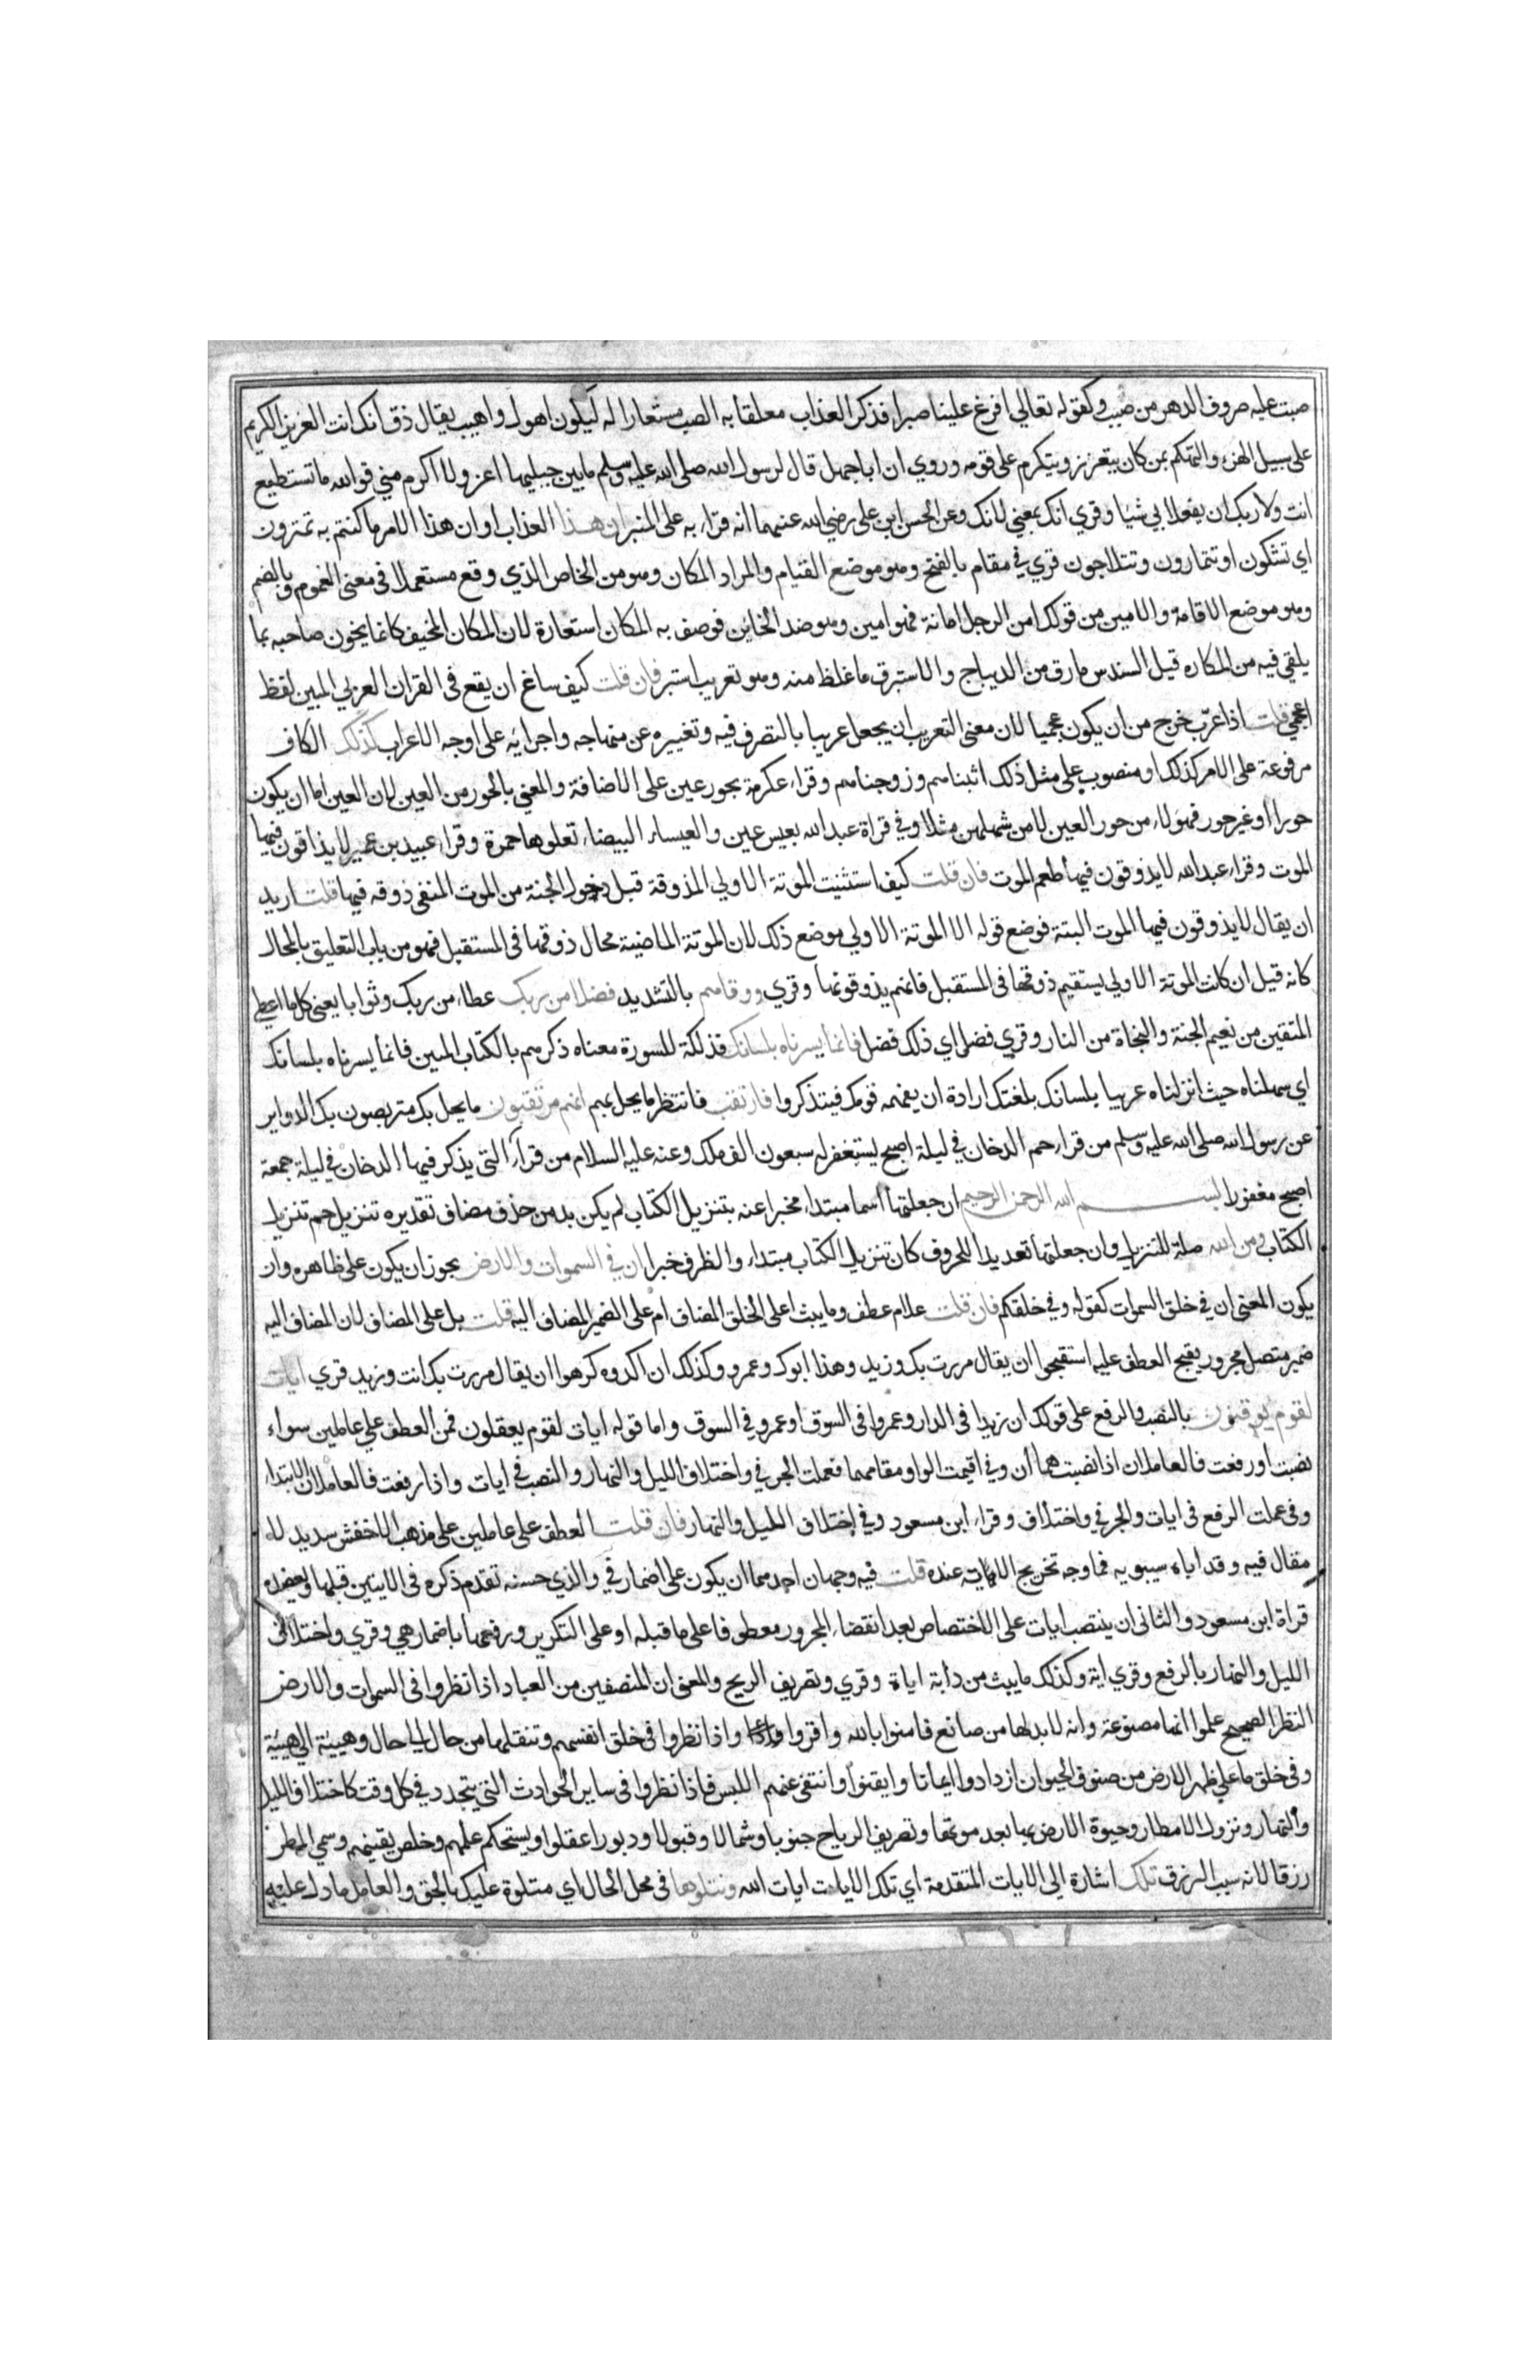 صبت عليه صروف الدهر من صبب وكقوله تعالي افرغ علينا صبرا فذكر العذاب معلقا به الصب مستعارا له ليكون اهول واهيب يقال ذق انك انت العزيز الكريم
على سبيل الهزء والتهكم بمن كان يتعزز ويتكرم على قومه وروي ان ابا جهل قال لرسول الله صلى الله عليه وسلم ما بين جبليها اعز ولا اكرم مني فوالله ما تستطيع
انت ولا ربك ان يفعلا بي شيا وقري انك بمعني لانك وعن الحسن ابن على رضي الله عنهما انه قراء به على المنبر ان هذا العذاب او ان هذا الامر ما كنتم به تمترون
اي تشكون او تتمارون وتتلاجون قري في مقام بالفتح وهو موضع القيام والمراد المكان وهو من الخاص الذي وقع مستعملا فى معنى العموم وبالضم
وهو موضع الاقامة والامين من قولك امن الرجل امانة فهو امين وهو ضد الخاين فوصف به المكان استعارة لان المكان المخيف كانما يخون صاحبه بما
يلقي فيه من المكاره قيل السندس مارق من الديباج والاستبرق ما غلظ منه وهو تعريب استبر فان قلت كيف ساغ ان يقع فى القران العربي المبين لفظ
اعجمي قلت اذا عرّب خرج من ان يكون عجميا لان معنى التعريب ان يجعل عربيا بالتصرف فيه وتغييره عن منهاجه واجرائه على اوجه الاعراب كذلك الكاف
مرفوعة على الامر كذلك او منصوب على مثل ذلك اثبناهم وزوجناهم وقراء عكرمة بحور عين على الاضافة والمعني بالحور من العين لان العين اما ان يكون
حورا او غير حور فهولاء من حور العين لا من شهلهن مثلا وفي قراة عبد الله بعيس عين والعيساء البيضاء تعلوها حمرة وقراء عبيد بن عمير لا يذاقون فيها
الموت وقراء عبد الله لا يذوقون فيها طعم الموت فان قلت كيف استثنيت الموتة الاولي المذوقة قبل دخول الجنة من الموت المنفى ذوقه فيها قلت اريد
ان يقال لا يذوقون فيها الموت البتة فوضع قوله الا الموتة الاولي موضع ذلك لان الموتة الماضية محال ذوقها فى المستقبل فهو من باب التعليق بالمحال
كانه قيل ان كانت الموتة الاولي يستقيم ذوقها فى المستقبل فانهم يذوقونها وقري ووقاهم بالتشديد فضلا من ربك عطاء من ربك وثوابا يعنى كل ما اعطى
المتقين من نعيم الجنة والنجاة من النار وقري فضل اي ذلك فضل فانما يسرناه بلسانك فذلكة للسورة معناه ذكرهم بالكتاب المبين فانما يسرناه بلسانك
اي سهلناه حيث انزلناه عربيا بلسانك بلغتك ارادة ان يفهمه قومك فيتذكروا فارتقب فانتظر ما يحل بهم انهم مرتقبون ما يحل بك متربصون بك الدواير
عن رسول الله صلى الله عليه وسلم من قراء حم الدخان في ليلة اصبح يستغفر له سبعون الف ملك وعنه عليه السلام من قراء التى يذكر فيها الدخان في ليلة جمعة
اصبح مغفورا بسم الله الرحمن الرحيم ان جعلتها اسما مبتداء مخبرا عنه بتنزيل الكتاب لم يكن بد من حذف مضاف تقديره تنزيل حم تنزيل
الكتاب ومن الله صلة للتنزيل وان جعلتها تعديدا للحروف كان تنزيل الكتاب مبتداء والظرف خبرا ان في السموات والارض يجوز ان يكون على ظاهره وان
يكون المعنى ان في خلق السموات كقوله وفي خلقكم فان قلت علام عطف وما يبث اعلى الخلق المضاف ام على الضمير المضاف اليه قلت بل على المضاف لان المضاف اليه
ضمير متصل مجرور يقبح العطف عليه استقبحوا ان يقال مررت بك وزيد وهذا ابوك وعمرو وكذلك ان اكدوه كرهوا ان يقال مررت بك انت وزيد قري ايات
لقوم يوقنون بالنصب والرفع على قولك ان زيدا فى الدار وعمروا فى السوق او عمرو في السوق واما قوله ايات لقوم يعقلون فمن العطف علي عاملين سواء
نصبت او رفعت فالعاملان اذا نصبت هما أن وفي اقيمت الواو مقامهما فعملت الجر في واختلاف الليل والنهار والنصب في ايات واذا رفعت فالعاملان الابتداء
وفى عملت الرفع فى ايات والجر في واختلاف وقراء ابن مسعود وفي اختلاف الليل والنهار فان قلت العطف على عاملين على مذهب الاخفش سديد لا
مقال فيه وقد اباه سيبويه فما وجه تخريج الاية عنده قلت فيه وجهان احدهما ان يكون على اضمار في والذي حسنه تقدم ذكره فى الايتين قبلها ويعضده
قراة ابن مسعود والثانى ان ينتصب ايات على الاختصاص بعد انقضاء المجرور معطوفا على ما قبله او على التكرير ورفعها باضمار هي وقري واختلاف
الليل والنهار بالرفع وقري اية وكذلك ما يبث من دابة اياة وقري وتصريف الريح والمعنى ان المنصفين من العباد اذا نظروا فى السموات والارض
النظر الصحيح علموا انها مصنوعة وانه لا بد لها من صانع فامنوا بالله واقروا واذا نظروا فى خلق انفسهم وتنقلها من حال الي حال وهيئة الي هيئة
وفى خلق ما علي ظهر الارض من صنوف الحيوان ازدادوا ايمانا وايقنوا وانتفى عنهم اللبس فاذا نظروا فى ساير الحوادث التى يتجدد في كل وقت كاختلاف الليل
والنهار ونزول الامطار وحيوة الارض بها بعد موتها وتصريف الرياح جنوبا وشمالا وقبولا ودبورا عقلوا ويستحكم علمهم وخلص يقينهم وسمي المطر
رزقا لانه سبب الرزق تلك اشارة الي الايات المتقدمة اي تلك الايات ايات الله ونتلوها فى محل الحال اي متلوة عليك بالحق والعامل ما دل عليه